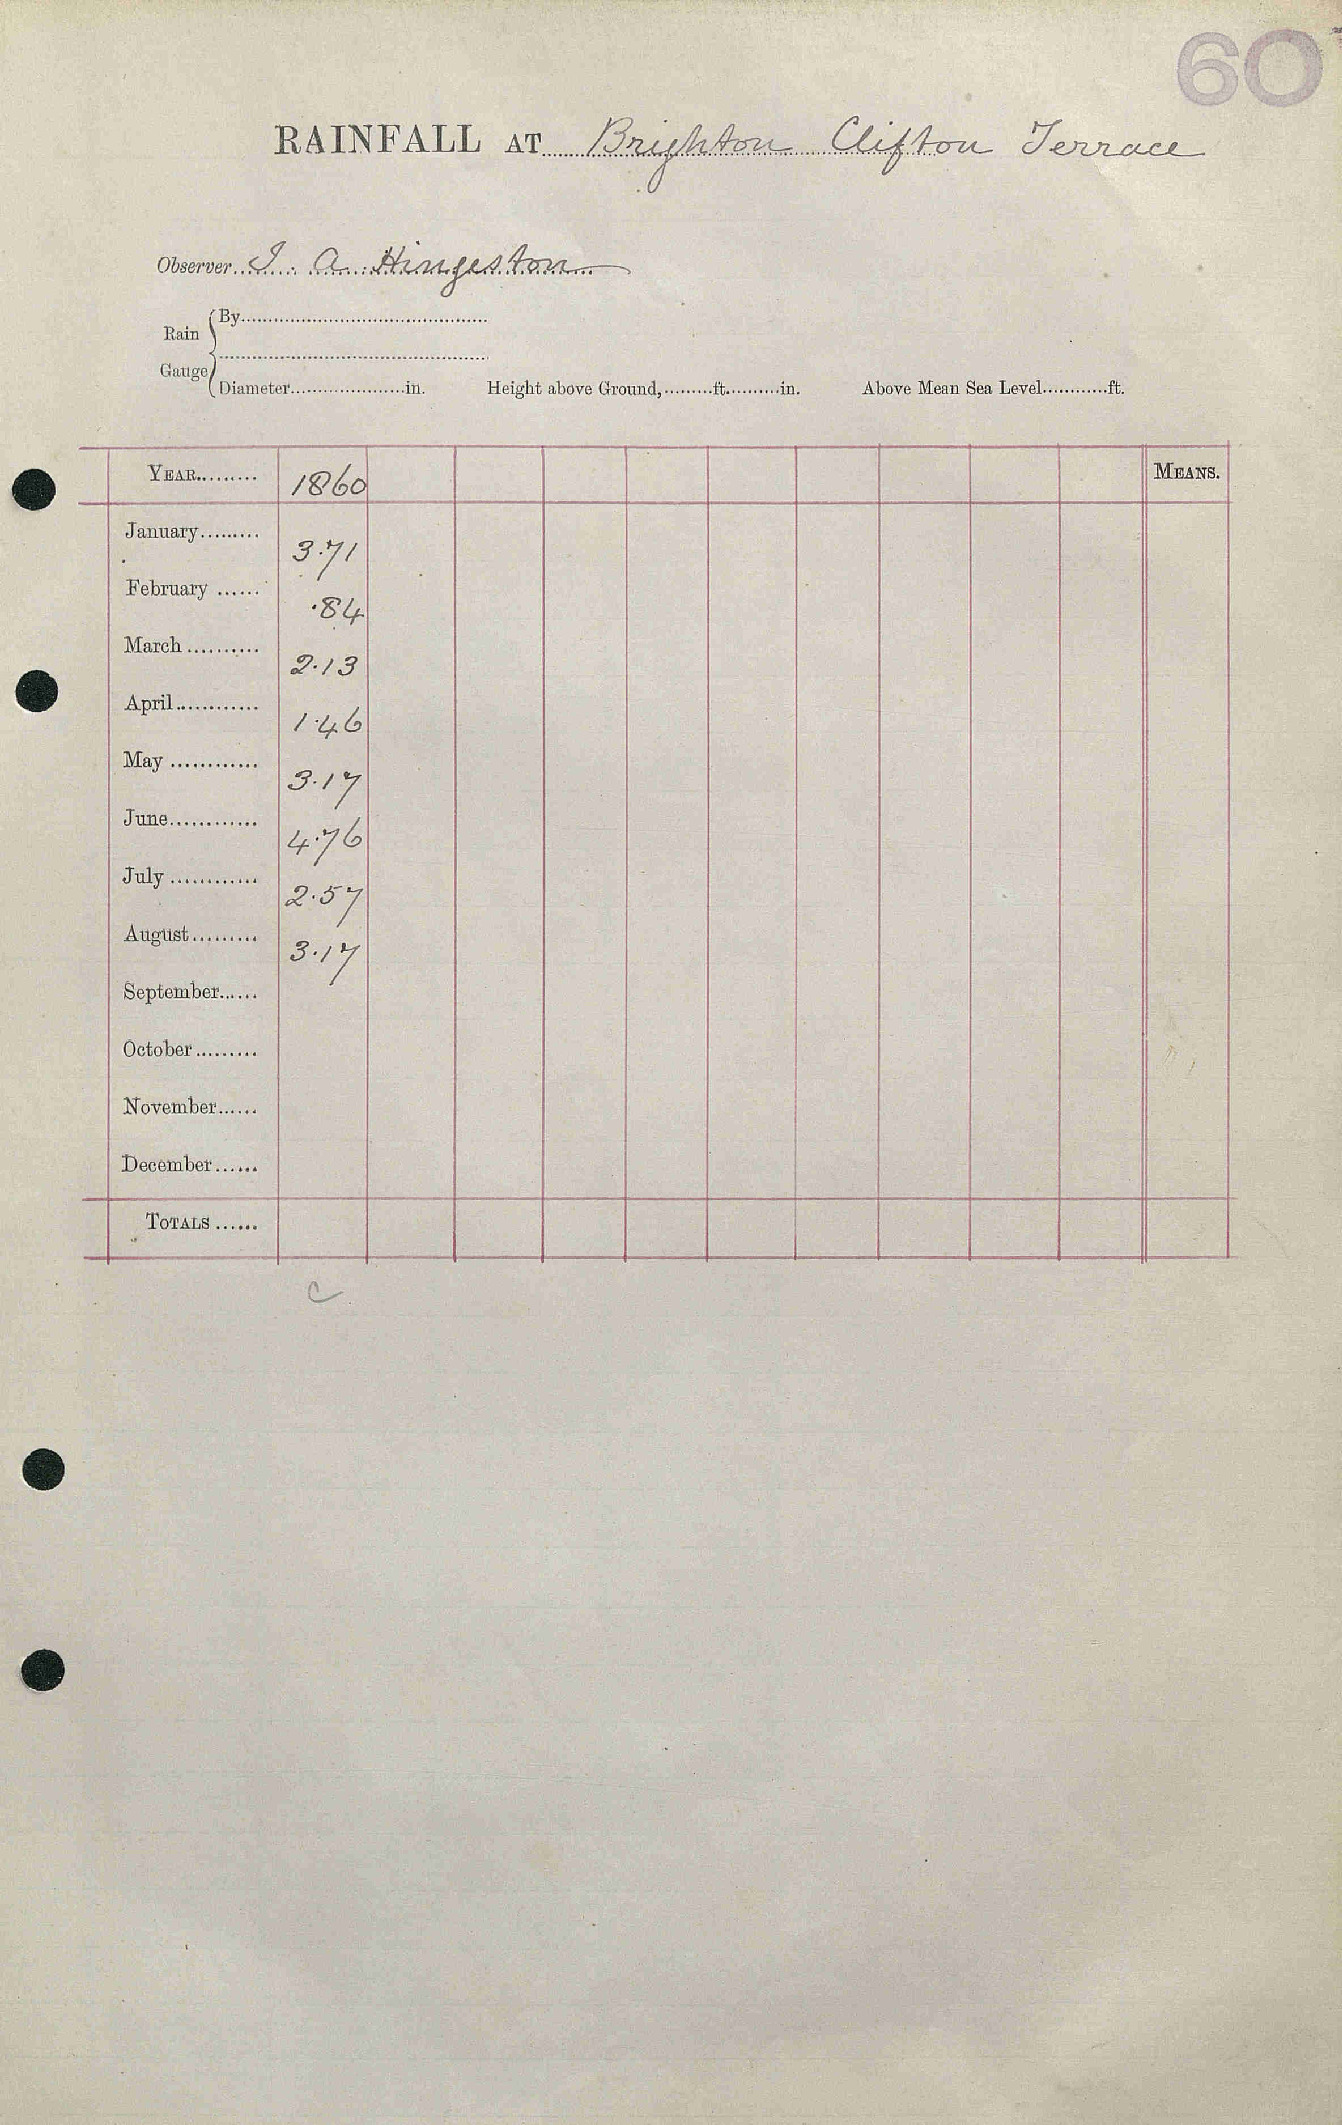 60
RAINFALL AT Brighton Clifton Terrace
Observer I. A. Hingeston
Rain Gauge
By
Diameter in. Height above Ground, ft. in. Above Mean Sea Level ft.
YEAR 1860 MEANS.
January 3.71
February .84
March 2.13
April 1.46
May 3.17
June 4.76
July 2.57
August 3.17
September
October
November
December
TOTALS
C